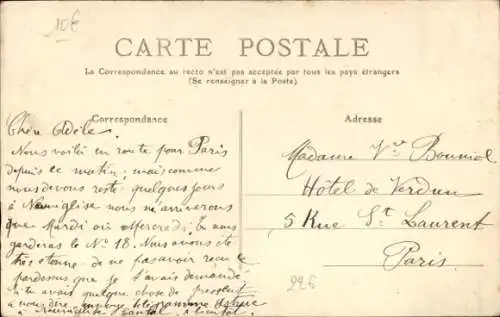 10€
CARTE POSTALE
La Correspondance au recto n'est pas acceptée par tous les pays étrangers
(Se renseigner à la Poste)
Correspondance
Chère Adèle.
Nous voilà en route pour Paris
depuis ce matin; mais comme
nous devons resté quelques jours
à Neuviglise nous n'arriverons
que Mardi ou Mercredi. Tu nous
garderas le No 18. Nous avons
très étonné de ne pas avoir reçu le
pardessus que je t'avais demandé
si tu avais quelque chose de pressent
à nous dire, envoye télégramme
à Neuviglise Cantal. à bientôt.
Adresse
Madame Vve Bouniol
Hôtel de Verdun
5 Rue St Laurent
Paris.
226